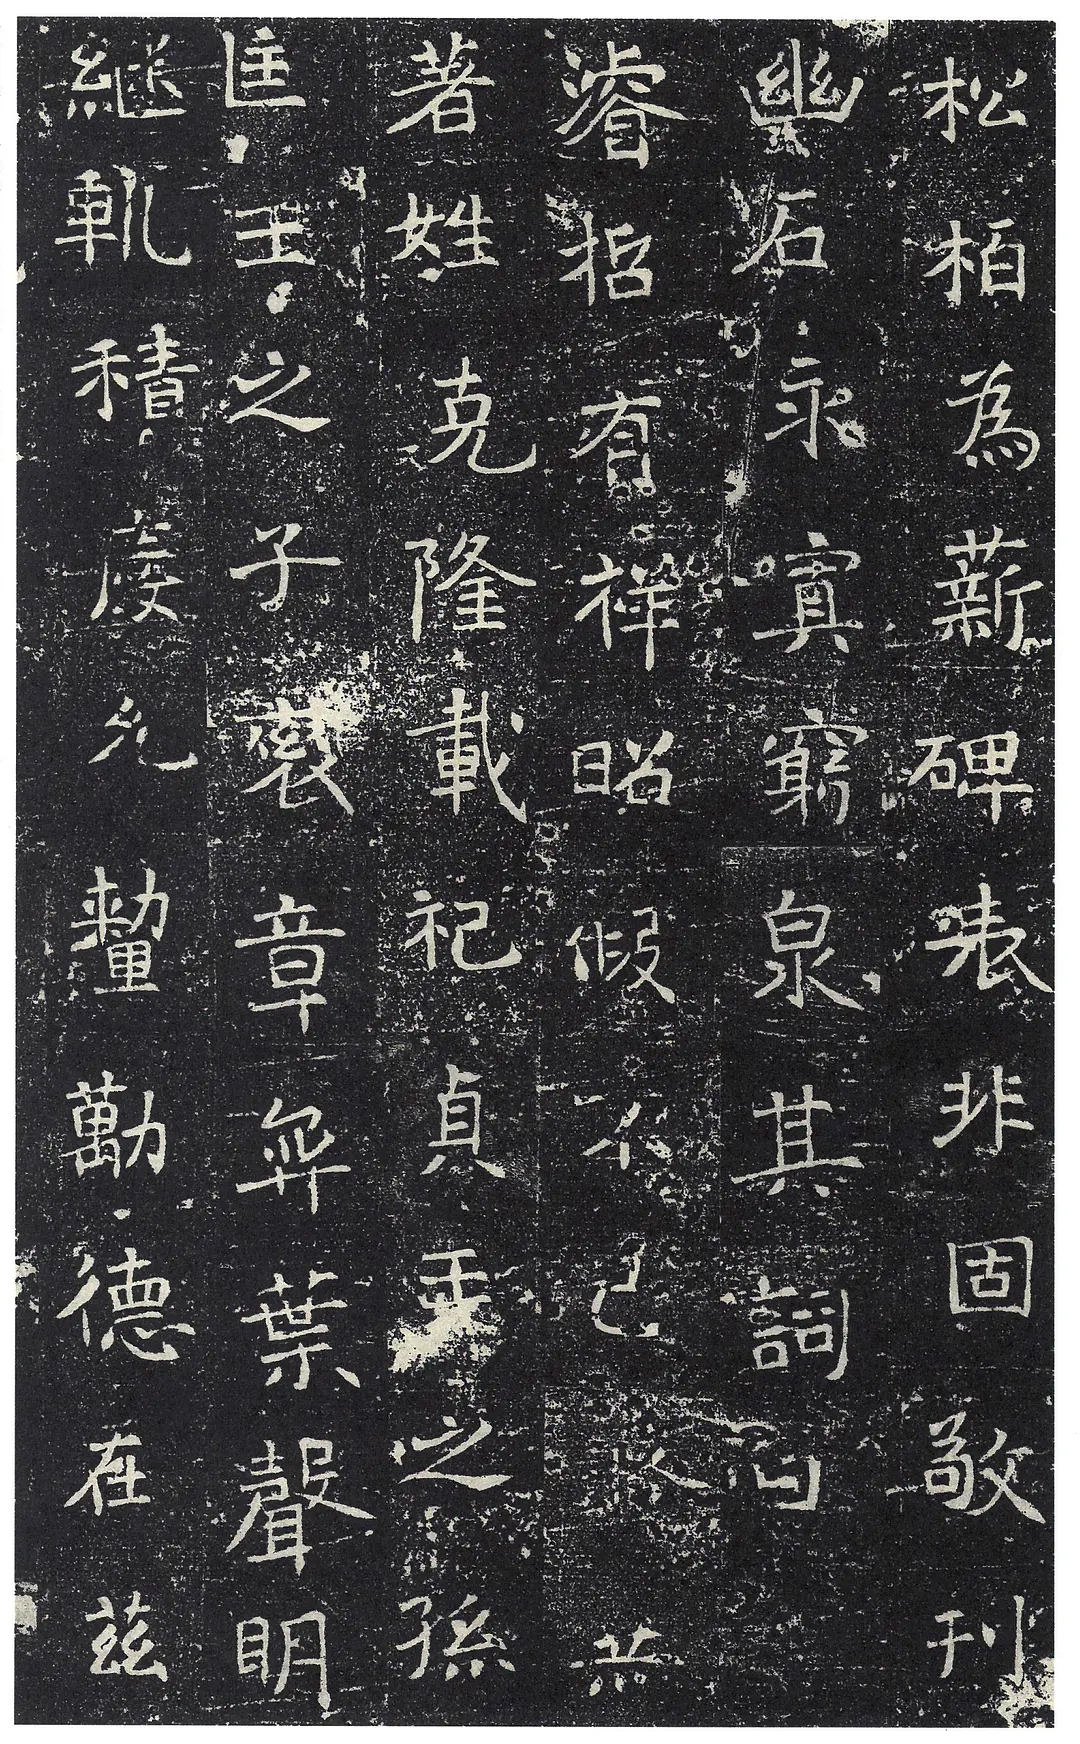 松柏為薪碑表非固敬刊
幽石永寘窮泉其詞曰
濬招有禅昭假不已
著姓克隆載祀貞王之孫
匡王之子襲章弈葉聲明
繼軌積慶允釐勱德在茲